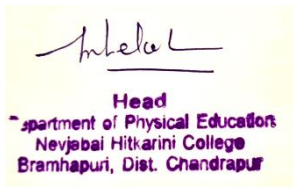 Head
Department of Physical Education
Nevjabai Hitkarini College
Bramhapuri, Dist. Chandrapur